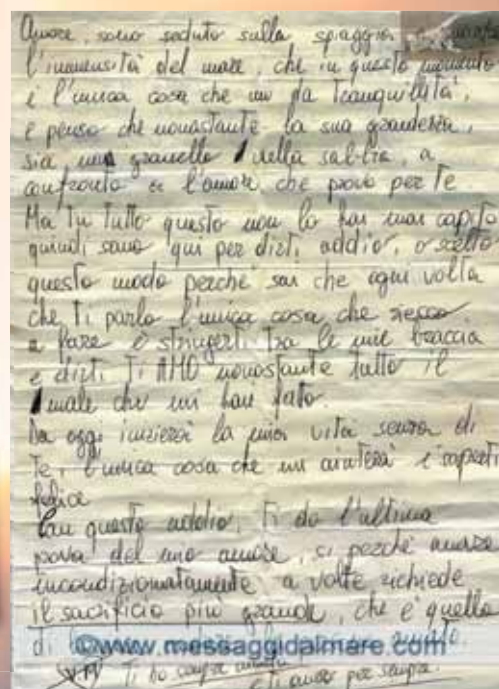 Amore, sono seduto sulla spiaggia e
l'immensità del mare, che in questo momento
è l'unica cosa che mi da tranquillità,
e penso che nonostante la sua grandezza,
sia un granello nella sabbia, a
confronto e l'amore che provo per te
Ma tu tutto questo non lo hai mai capito
quindi sono qui per dirti addio, o scelto
questo modo perché sai che ogni volta
che ti parlo l'unica cosa che riesco
a fare è stringerti tra le mie braccia
e dirti Ti AMO nonostante tutto il
male che mi hai fato.
Da oggi inizierà la mia vita senza di
te, l'unica cosa che mi aiuterà è saperti
felice
Con questo addio, Ti do l'ultima
prova del mio amore, si perché amare
incondizionatamente a volte richiede
il sacrificio più grande, che è quello
di
©www.messaggidalmare.com
Ti ho sempre amata
e ti amerò per sempre.